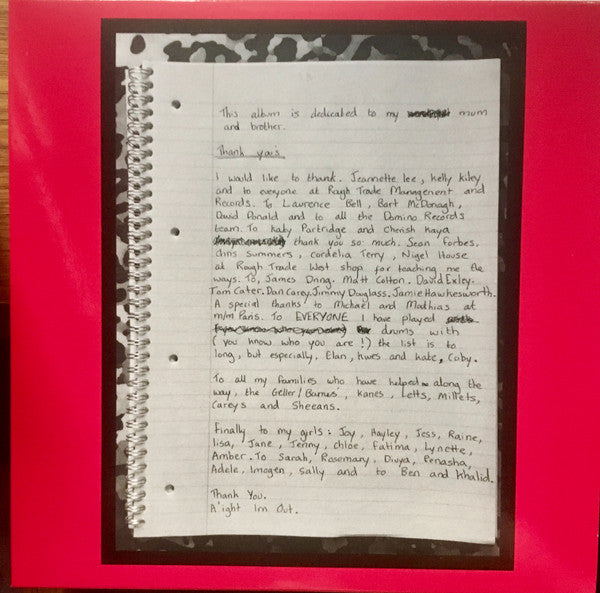 This album is dedicated to my mum
and brother.
Thank yous
I would like to thank. Jeannette lee, kelly kiley
and to everyone at Rough Trade Management and
Records. To Lawrence Bell, Bart McDonagh,
David Donald and to all the Domino Records
team. To Katy Partridge and Cherish Kaya
thank you so much. Sean forbes.
Chris Summers, Cordelia Terry, Nigel House
at Rough Trade West shop for teaching me the
ways. To, James Dring. Matt Colton. David Exley.
Tom Cater. Dan Carey. Jimmy Douglass. Jamie Hawkesworth.
A special thanks to Michael and Mathias at
m/m Paris. To EVERYONE I have played
drums with
(you know who you are!) the list is to
long, but especially. Elan, hwes and kate, Coby.
To all my families who have helped along the
way, the Geller/Barnes', Kanes, Letts, Millets,
Careys and Sheeans.
Finally to my girls: Joy, Hayley, Jess, Raine,
lisa, Jane, Jenny, Chloe, Fatima, Lynette,
Amber. To Sarah, Rosemary, Divya, Penasha,
Adele, Imogen, Sally and to Ben and Khalid.
Thank You.
A'ight Im Out.